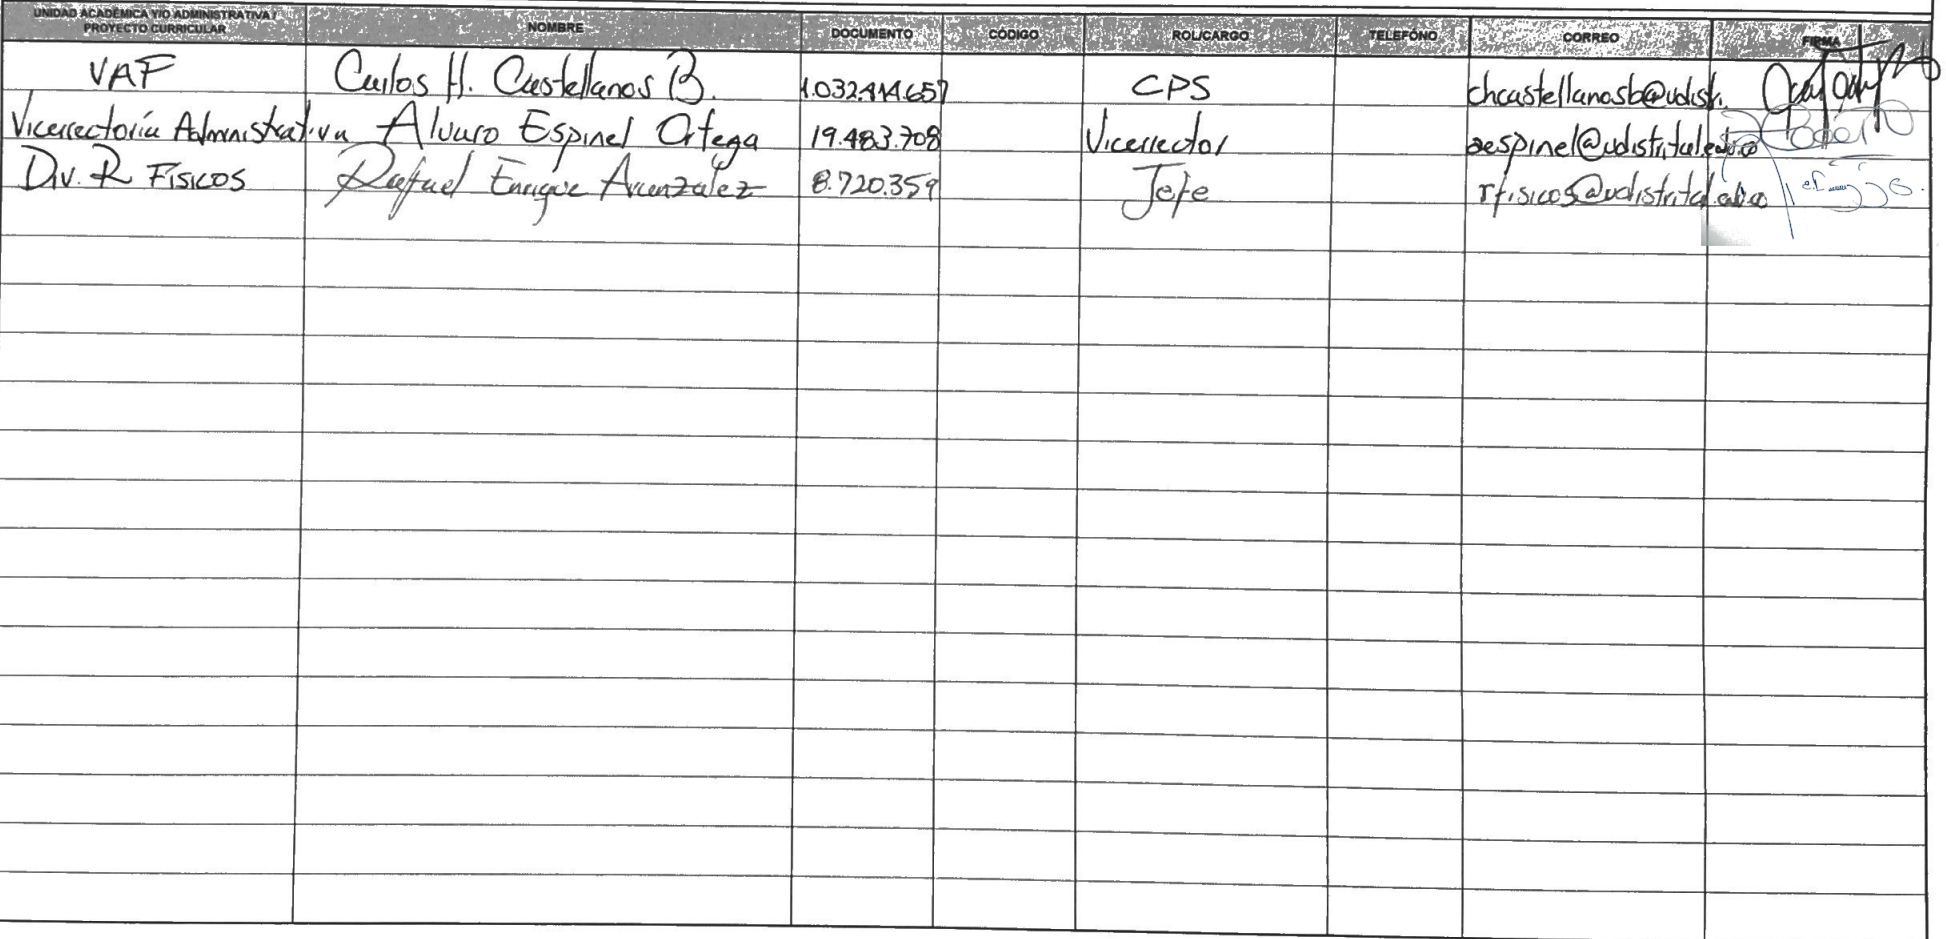 UNIDAD ACADÉMICA Y/O ADMINISTRATIVA / PROYECTO CURRICULAR NOMBRE DOCUMENTO CÓDIGO ROL/CARGO TELEFÓNO CORREO FIRMA
VAF Carlos H. Castellanos B. 1.032.414.657 CPS chcastellanosb@udistr.
Vicerrectoría Administrativa Alvaro Espinel Ortega 19.483.708 Vicerrector aespinel@udistrital.edu.co
Div. R Físicos Rafael Enrique Aranzalez 8.720.359 Jefe rfisicos@udistrital.edu.co